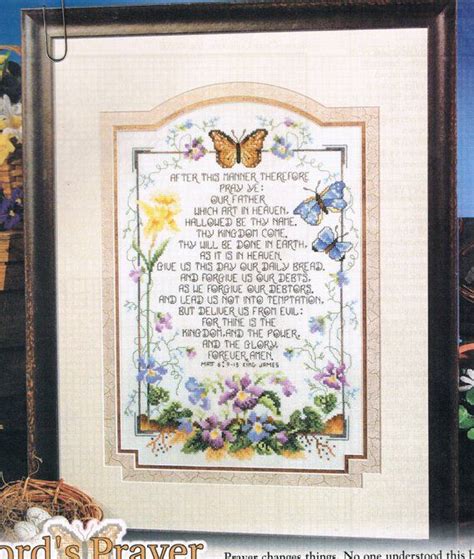 AFTER THIS MANNER THEREFORE
PRAY YE:
OUR FATHER
WHICH ART IN HEAVEN,
HALLOWED BE THY NAME.
THY KINGDOM COME.
THY WILL BE DONE IN EARTH,
AS IT IS IN HEAVEN.
GIVE US THIS DAY OUR DAILY BREAD.
AND FORGIVE US OUR DEBTS,
AS WE FORGIVE OUR DEBTORS.
AND LEAD US NOT INTO TEMPTATION,
BUT DELIVER US FROM EVIL:
FOR THINE IS THE
KINGDOM, AND THE POWER,
AND THE GLORY,
FOREVER. AMEN.
MAT 6:9-13 KING JAMES
ord's Prayer
Prayer changes things. No one understood this b